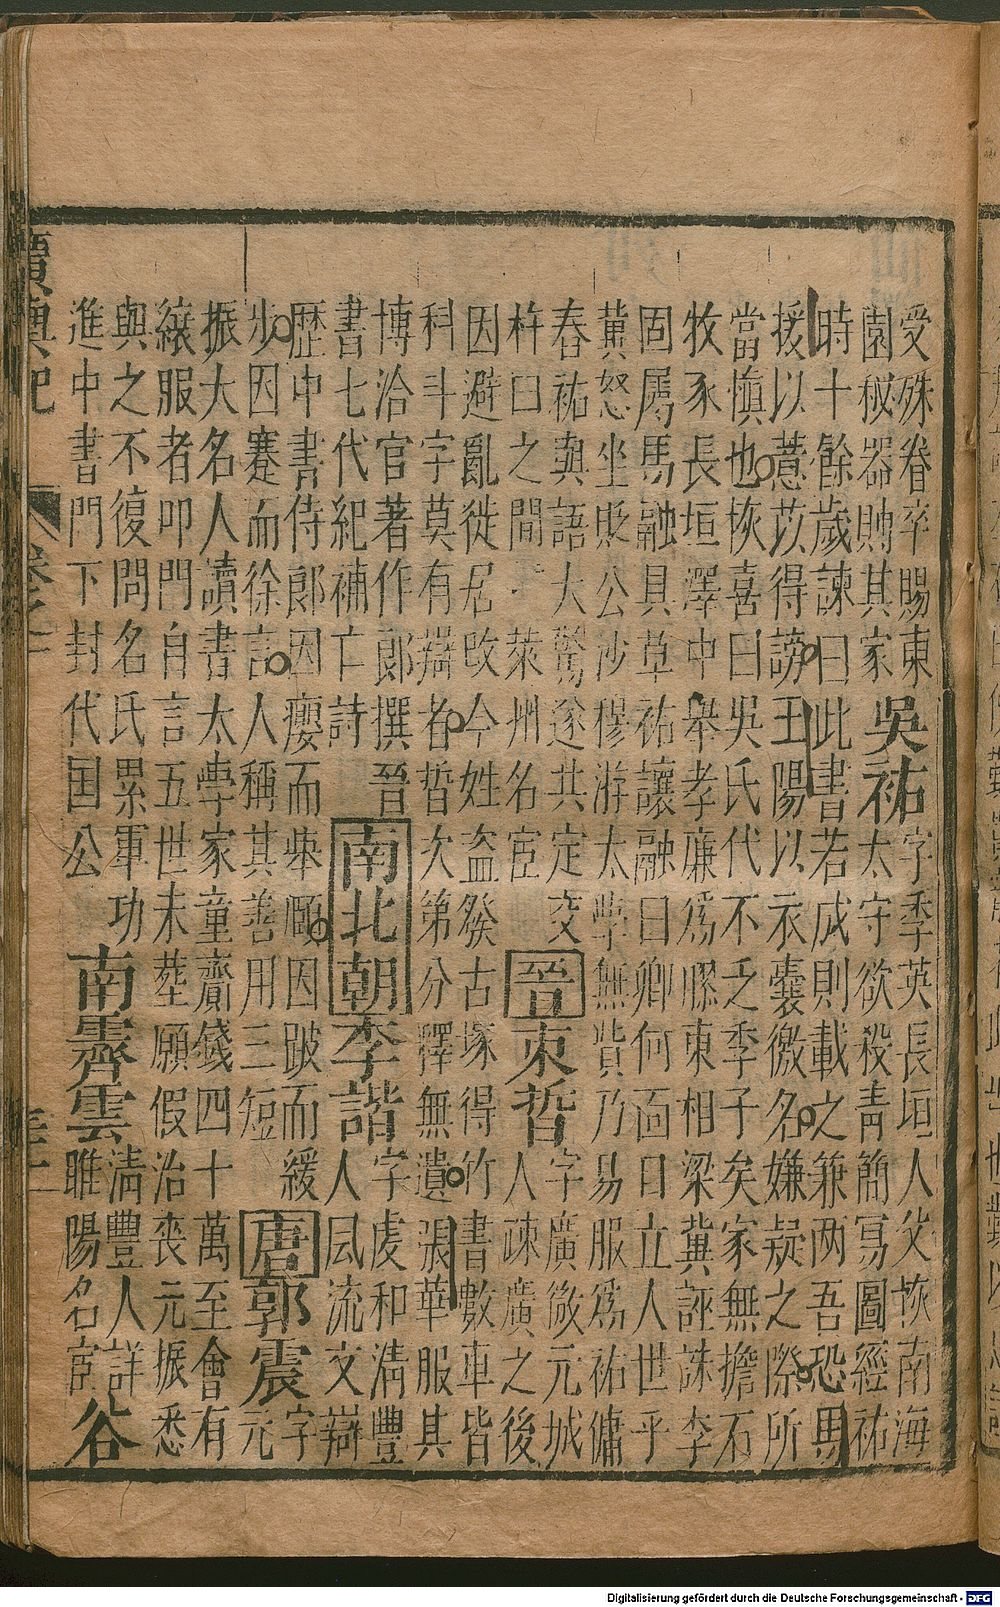 受殊眷卒賜東
園秘器賻其家
吳祐
字季英長垣人父恢南海
太守欲殺青簡冩圖經祐
時十餘歲諫曰此書若成則載之兼两吾恐馬
援以薏苡得謗王陽以衣囊徼名嫌疑之際所
當慎也恢喜曰吳氏代不乏季子矣家無擔石
牧豕長垣澤中舉孝廉爲膠東相梁冀誣誅李
固屬馬融具草祐讓融曰卿何靣目立人世乎
冀怒坐貶公沙穆游太學無貲乃易服爲祐傭
春祐與語大驚遂共定交
杵曰之間 萊州名宦
晉
束晳
字廣微元城
人疎廣之後
因避亂徙居改今姓盗發古塚得竹書數車皆
科斗字莫有辯者晳次第分釋無遺張華服其
博洽官著作郎撰晉
書七代紀補亡詩
南北朝
李諧
字虔和清豐
人風流文辯
歷中書侍郎因癭而舉頤因跛而緩
步因蹇而徐言人稱其善用三短
唐
郭震
字
元
振大名人讀書太學家童齎錢四十萬至會有
縗服者叩門自言五世未塟願假治喪元振悉
與之不復問名氏累軍功
進中書門下封代国公
南霽雲
清豐人詳
睢陽名宦
谷
廣輿記
卷之一
Digitalisierung gefördert durch die Deutsche Forschungsgemeinschaft - DFG